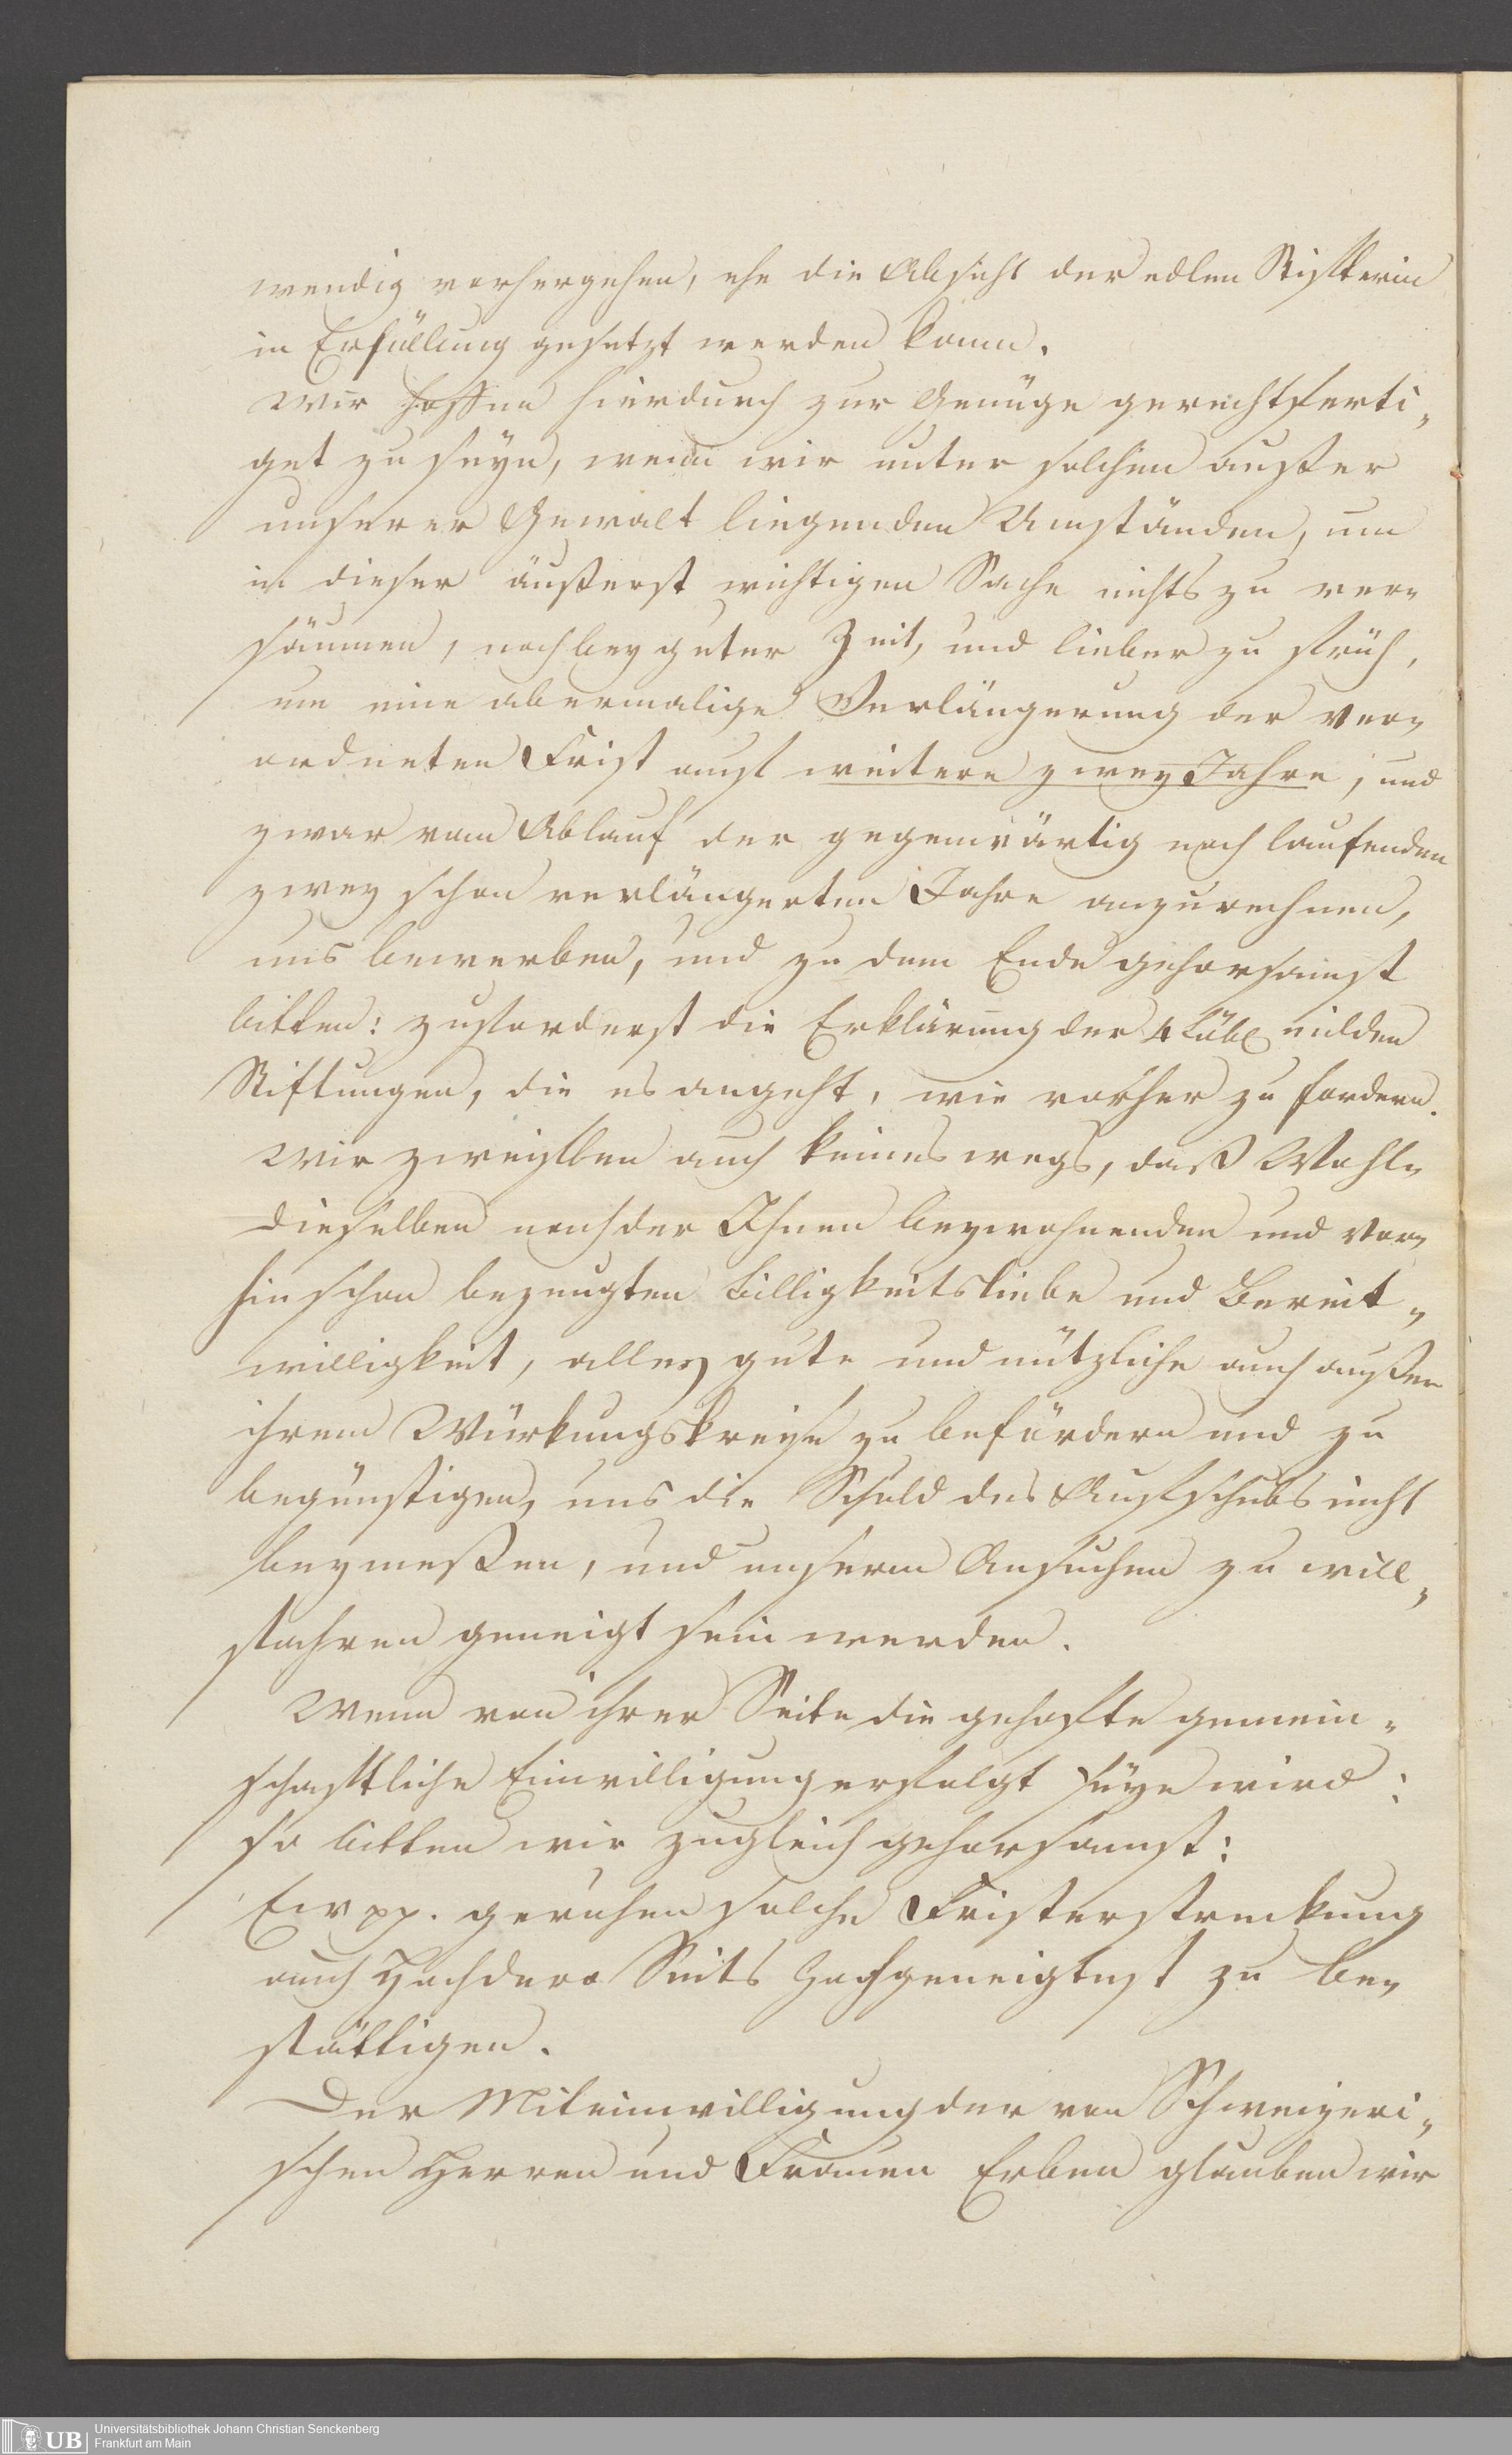 wendig vorhergehen, ehe die Absicht der edlen Stifterin
in Erfüllung gesetzt werden kann.
Wir hoffen hierdurch zur Genüge gerechtferti„
get zu seyn, wenn wir unter solchen außer
unserer Gewalt liegenden Umständen, um
in dieser äußerst wichtigen Sache nichts zu ver„
säumen, noch bey guter Zeit, und lieber zu früh,
um eine abermalige Verlängerung der ver„
ordneten Frist auf weitere zwey Jahre, und
zwar vom Ablauf der gegenwärtig noch laufenden
zwey schon verlängerten Jahre anzurechnen,
uns bewerben, und zu dem Ende gehorsamst
bitten: zuforderst die Erklärung der 4 Löbl milden
Stiftungen, die es angeht, wie vorher zu fordern.
Wir zweiflen auch keineswegs, daß Wohl„
dieselben nach der Ihnen beywohnenden und vor„
hin schon bezeugten Billigkeitsliebe und Bereit„
willigkeit, alles gute und nützliche auch außer
ihrem Würkungskreise zu befördern und zu
begünstigen, uns die Schuld des Aufschubs nicht
beymeßen, und unserm Ansuchen zu will„
fahren geneigt sein werden.
Wenn von ihrer Seite die gehofte gemein„
schaftliche Einwilligung erfolgt seyn wird:
so bitten wir zugleich gehorsamst:
Ew pp. geruhen solche Fristerstreckung
auch Hochdero Seits Hochgeneigtest zu be„
stättigen.
Der Miteinwilligung der von Schweizeri„
schen Herren und Frauen Erben glauben wir
UB Universitätsbibliothek Johann Christian Senckenberg
Frankfurt am Main